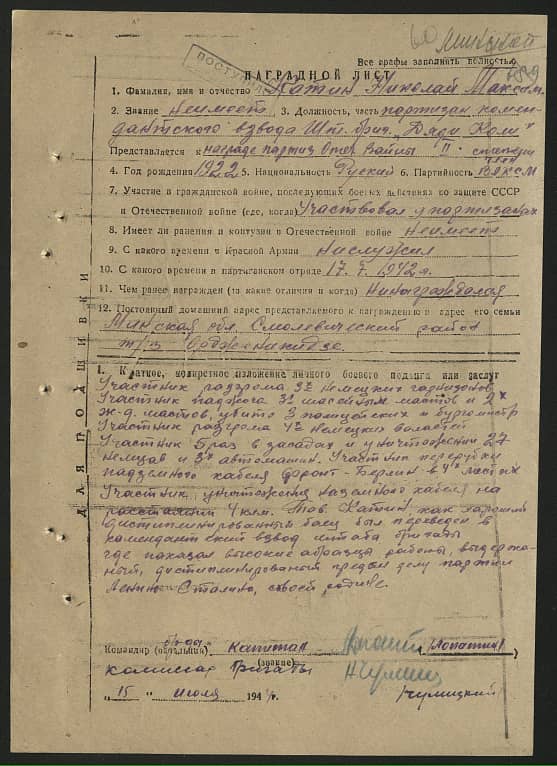 60 Минской
ПОСТУ
Все графы заполнить полностью
НАГРАДНОЙ ЛИСТ
1. Фамилия, имя и отчество Хатин Николай Максим.
2. Звание Неимеет 3. Должность, часть партизан комен-
дантского взвода Шт. бриг. "Дяди Коли"
Представляется к награде партиз Отеч. Войны "II" степени
4. Год рождения 1922 5. Национальность Руский 6. Партийность член ВЛКСМ
7. Участие в гражданской войне, последующих боевых действиях по защите СССР
и Отечественной войне (где, когда) Участвовал у партизанах
8. Имеет ли ранения и контузии в Отечественной войне Неимеет
9. С какого времени в Красной Армии Неслужил
10. С какого времени в партизанском отряде 17. 1942 г.
11. Чем ранее награжден (за какие отличия и когда) Ненаграждался
12. Постоянный домашний адрес представляемого к награждению и адрес его семьи
Минская обл. Смолевический район
т/з Ворджоникидзе.
ДЛЯ ПОДШИВКИ
I. Краткое, конкретное изложение личного боевого подвига или заслуг
Участник разгрома 3х немецких гарнизонов
Участник паджога 3х шосейных мастов и 2х
ж-д. мастов, убито 3 полицейских и бургомистр
Участник разгрома 4х немецких волостей
Участник 5 раз в засадах и уничтожении 27
немцав и 3х автомашин. Участник перерубки
падземного кабеля фронт-Берлин в 4х местах
Участник уничтожения наземного кабеля на
расстоянии 4 клм. Тов. Хатин, как хароший
дистиплинированный баец был переведен в
камендантский взвод штаба бригады
где паказал высокие абразцы работы, выдержа-
ный, дистиплинированый предан делу партии
Ленина Сталина, своей родине.
Командир (начальник) капитан (Лопатин)
(звание)
комисар бригады
"15" июля 1944 г.